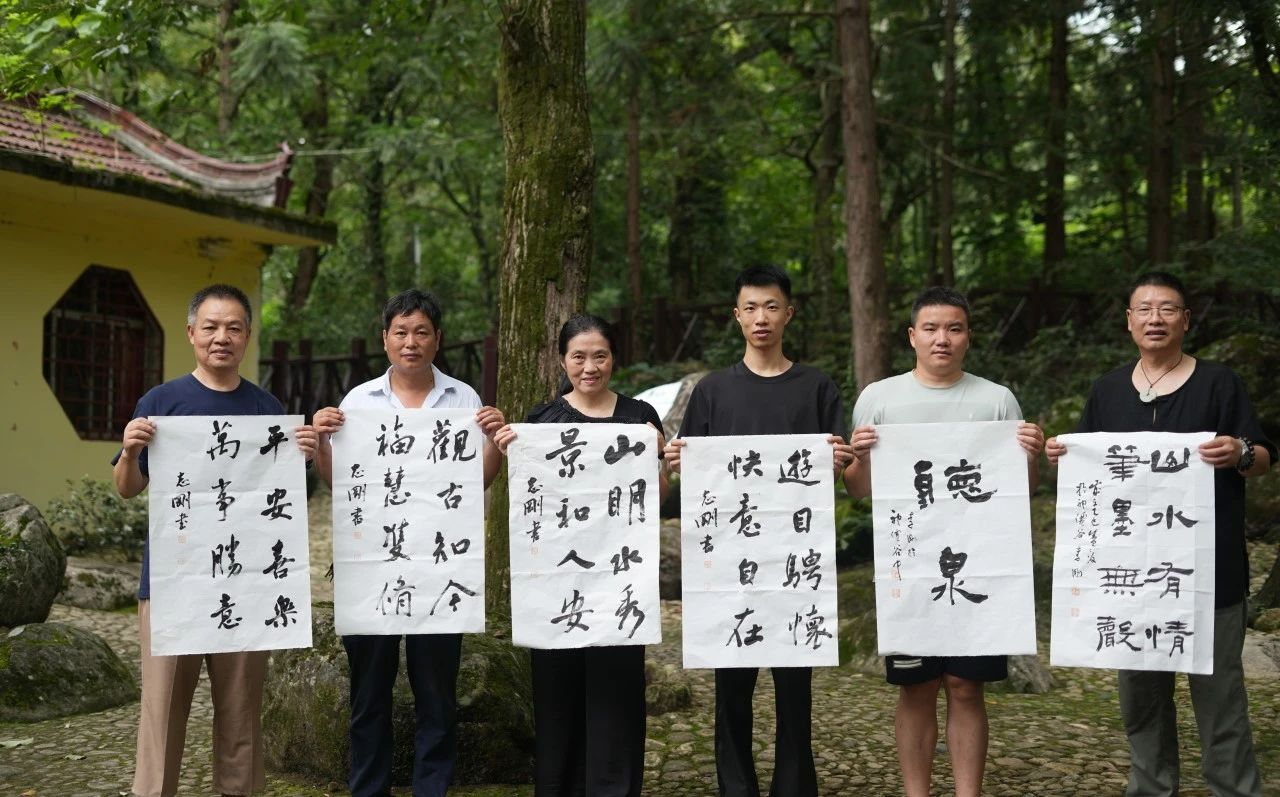 平安喜樂
萬事勝意
志剛書
觀古知今
福慧雙脩
志剛書
山明水秀
景和人安
志剛書
遊目騁懷
快意自在
志剛書
聽泉
山水有情
筆墨無聲